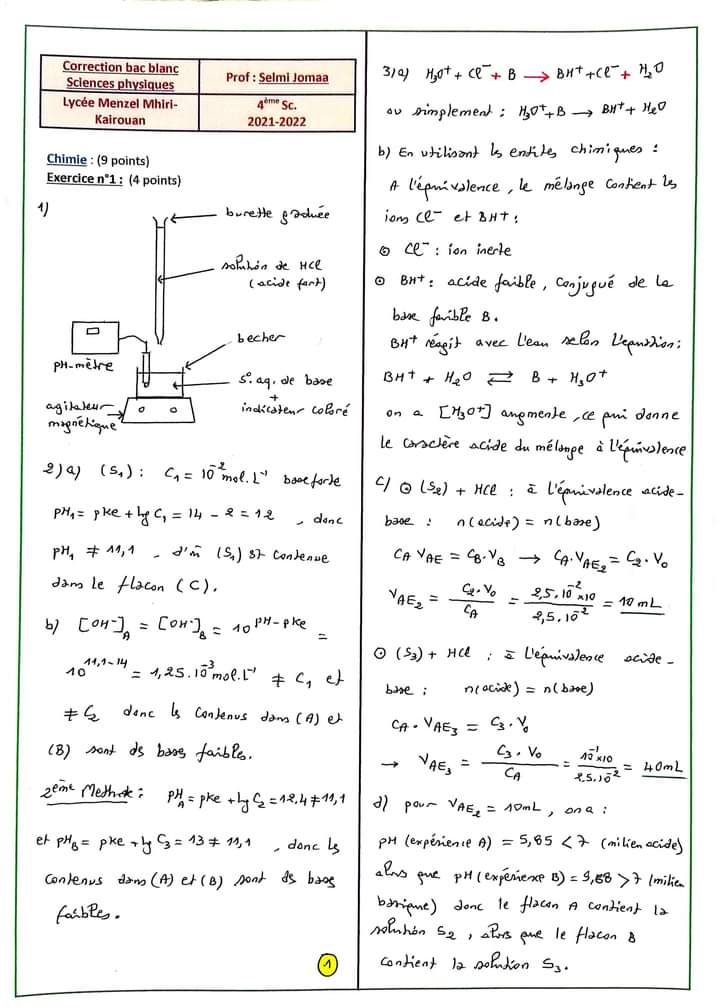 Correction bac blanc
Sciences physiques
Prof : Selmi Jomaa
Lycée Menzel Mhiri-
Kairouan
4ème Sc.
2021-2022
Chimie : (9 points)
Exercice n°1 : (4 points)
1)
burette graduée
solution de HCl
(acide fort)
becher
pH-mètre
S° aq. de base
+
indicateur coloré
agitateur
magnétique
2) a) (S₁) : C₁ = 10⁻² mol.L⁻¹ base forte
pH₁ = pke + lg C₁ = 14 - 2 = 12 , donc
pH₁ ≠ 11,1 . d'où (S₁) st contenue
dans le flacon (C).
b) [OH⁻]A = [OH⁻]B = 10^(pH-pke) =
10^(11,1-14) = 1,25.10⁻³ mol.L⁻¹ ≠ C₁ et
≠ C₂ donc ls contenus dans (A) et
(B) sont ds bases faibles.
2ème Methode : pHA = pke + lg C₂ = 12,4 ≠ 11,1
et pHB = pke + lg C₃ = 13 ≠ 11,1 , donc ls
contenus dans (A) et (B) sont ds bases
faibles.
1
3/a) H₃O⁺ + Cl⁻ + B → BH⁺ + Cl⁻ + H₂O
ou simplement : H₃O⁺ + B → BH⁺ + H₂O
b) En utilisant ls entites chimiques :
A l'équivalence , le mélange contient ls
ions Cl⁻ et BH⁺ :
⊙ Cl⁻ : ion inerte
⊙ BH⁺ : acide faible , conjugué de la
base faible B.
BH⁺ réagit avec l'eau selon l'equation :
BH⁺ + H₂O ⇌ B + H₃O⁺
on a [H₃O⁺] augmente , ce qui donne
le caractère acide du mélange à l'équivalence
c) ⊙ (S₂) + HCl : à l'équivalence acide-
base : n(acide) = n(base)
CA VAE = CB.VB → CA.VAE₂ = C₂.V₀
VAE₂ = C₂.V₀ / CA = 2,5.10⁻²×10 / 2,5.10⁻² = 10 mL
⊙ (S₃) + HCl : à l'équivalence acide-
base : n(acide) = n(base)
CA.VAE₃ = C₃.V₀
→ VAE₃ = C₃.V₀ / CA = 10⁻¹×10 / 2,5.10⁻² = 40mL
d) pour VAE₂ = 10mL , on a :
pH (expérience A) = 5,85 < 7 (milieu acide)
alors que pH (expérience B) = 9,88 > 7 (milieu
basique) donc le flacon A contient la
solution S₂ , alors que le flacon B
contient la solution S₃.